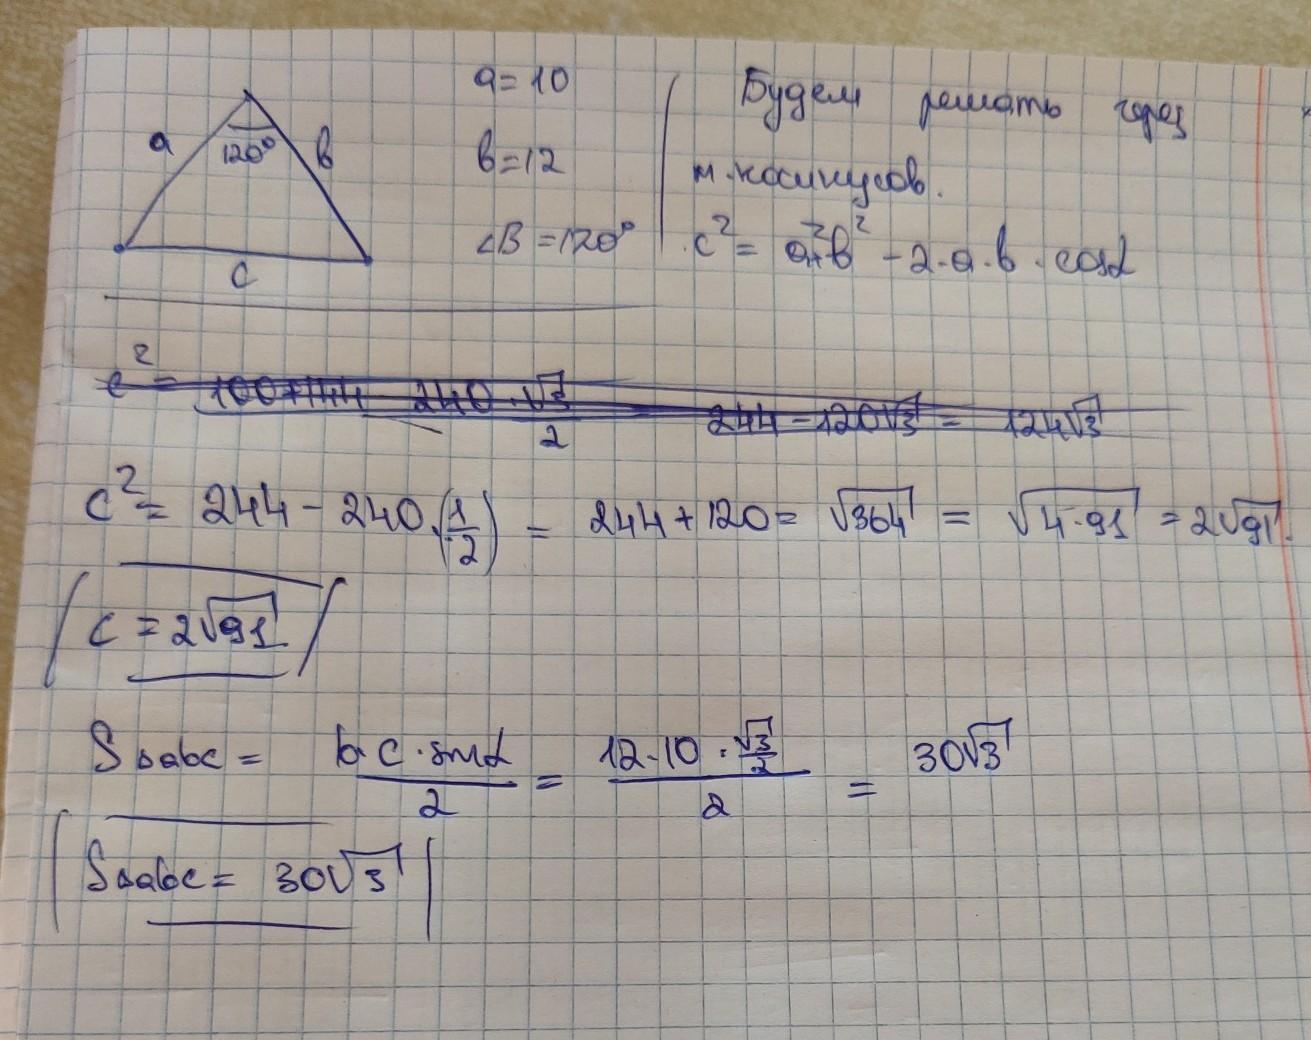 a
120°
b
c
a = 10
b = 12
∠B = 120°
Будем решать через
т. косинусов.
c² = a² + b² - 2·a·b·cosα
c² = 100 + 144 - 240·√3/2 = 244 - 120√3 = 124√3
c² = 244 - 240·(1/2) = 244 + 120 = √364 = √4·91 = 2√91.
c = 2√91
S△abc = b·c·sinα/2 = 12·10·√3/2/2 = 30√3
S△abc = 30√3